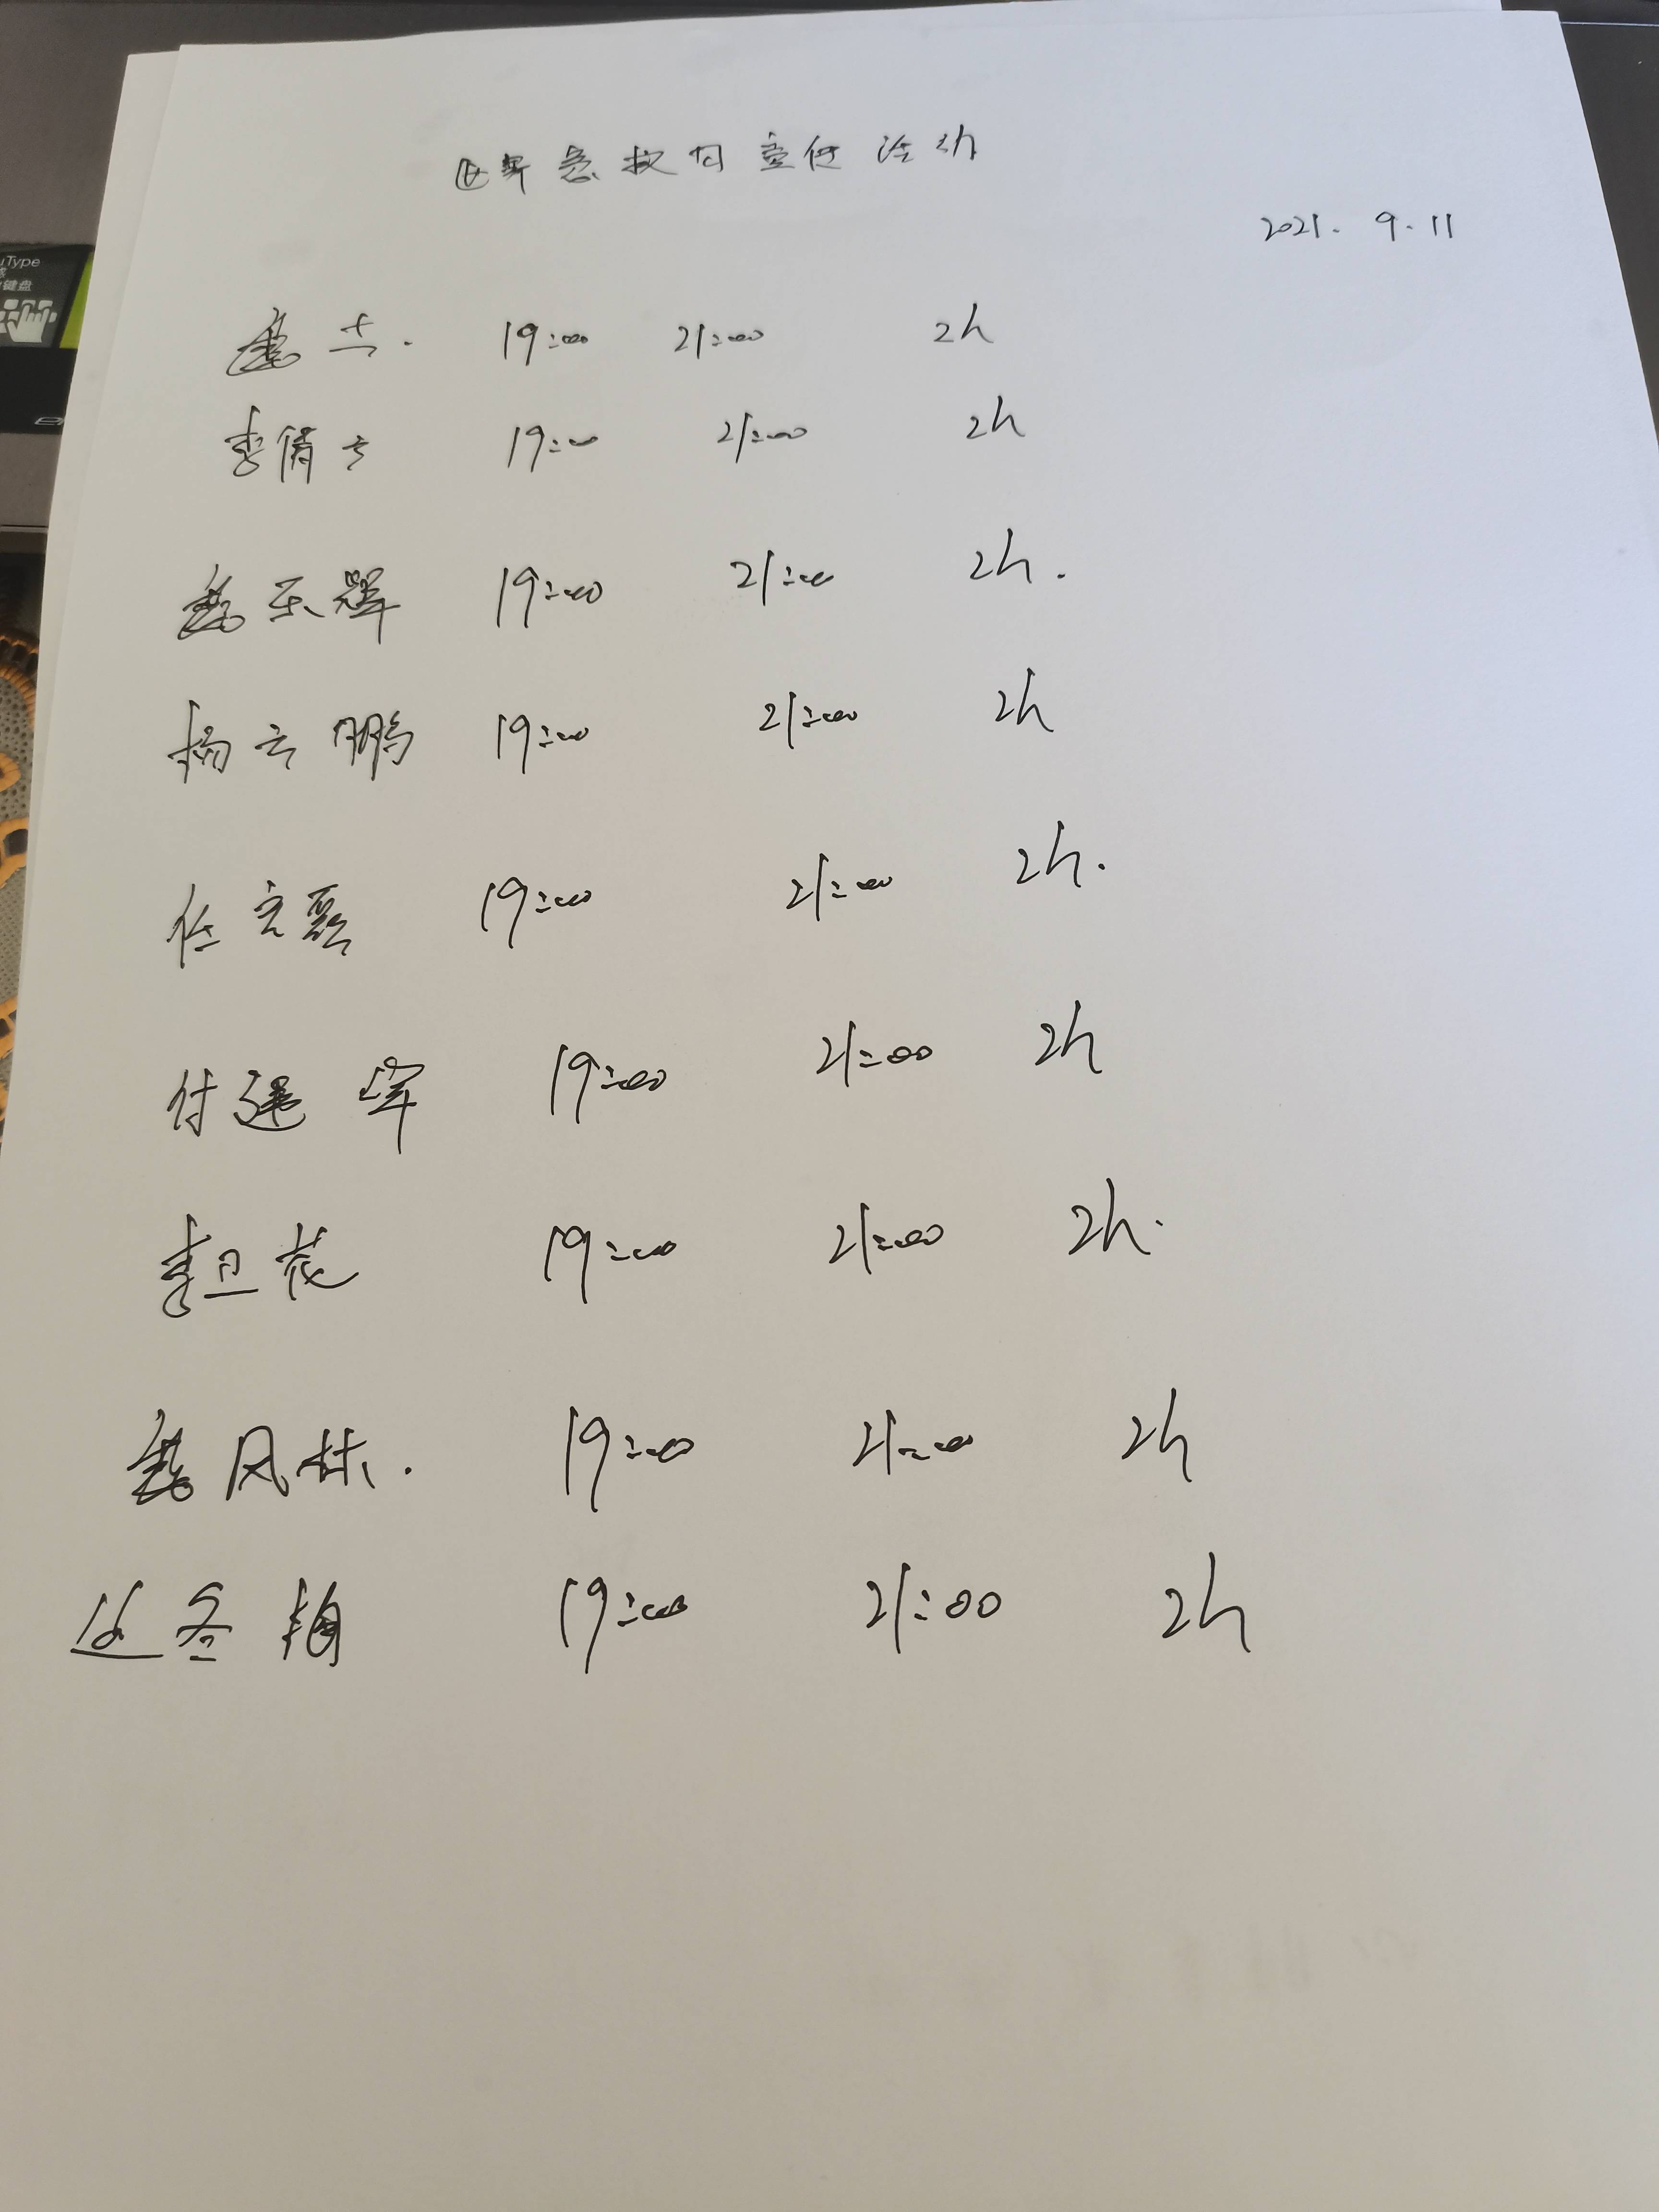 世界急救日宣传活动
2021. 9. 11
uType
键盘
19:00 21:00 2h
李倩 19:00 21:00 2h
乐辉 19:00 21:00 2h.
杨云鹏 19:00 21:00 2h
任 19:00 21:00 2h.
付建军 19:00 21:00 2h
李卫花 19:00 21:00 2h.
风林. 19:00 21:00 2h
边冬梅 19:00 21:00 2h